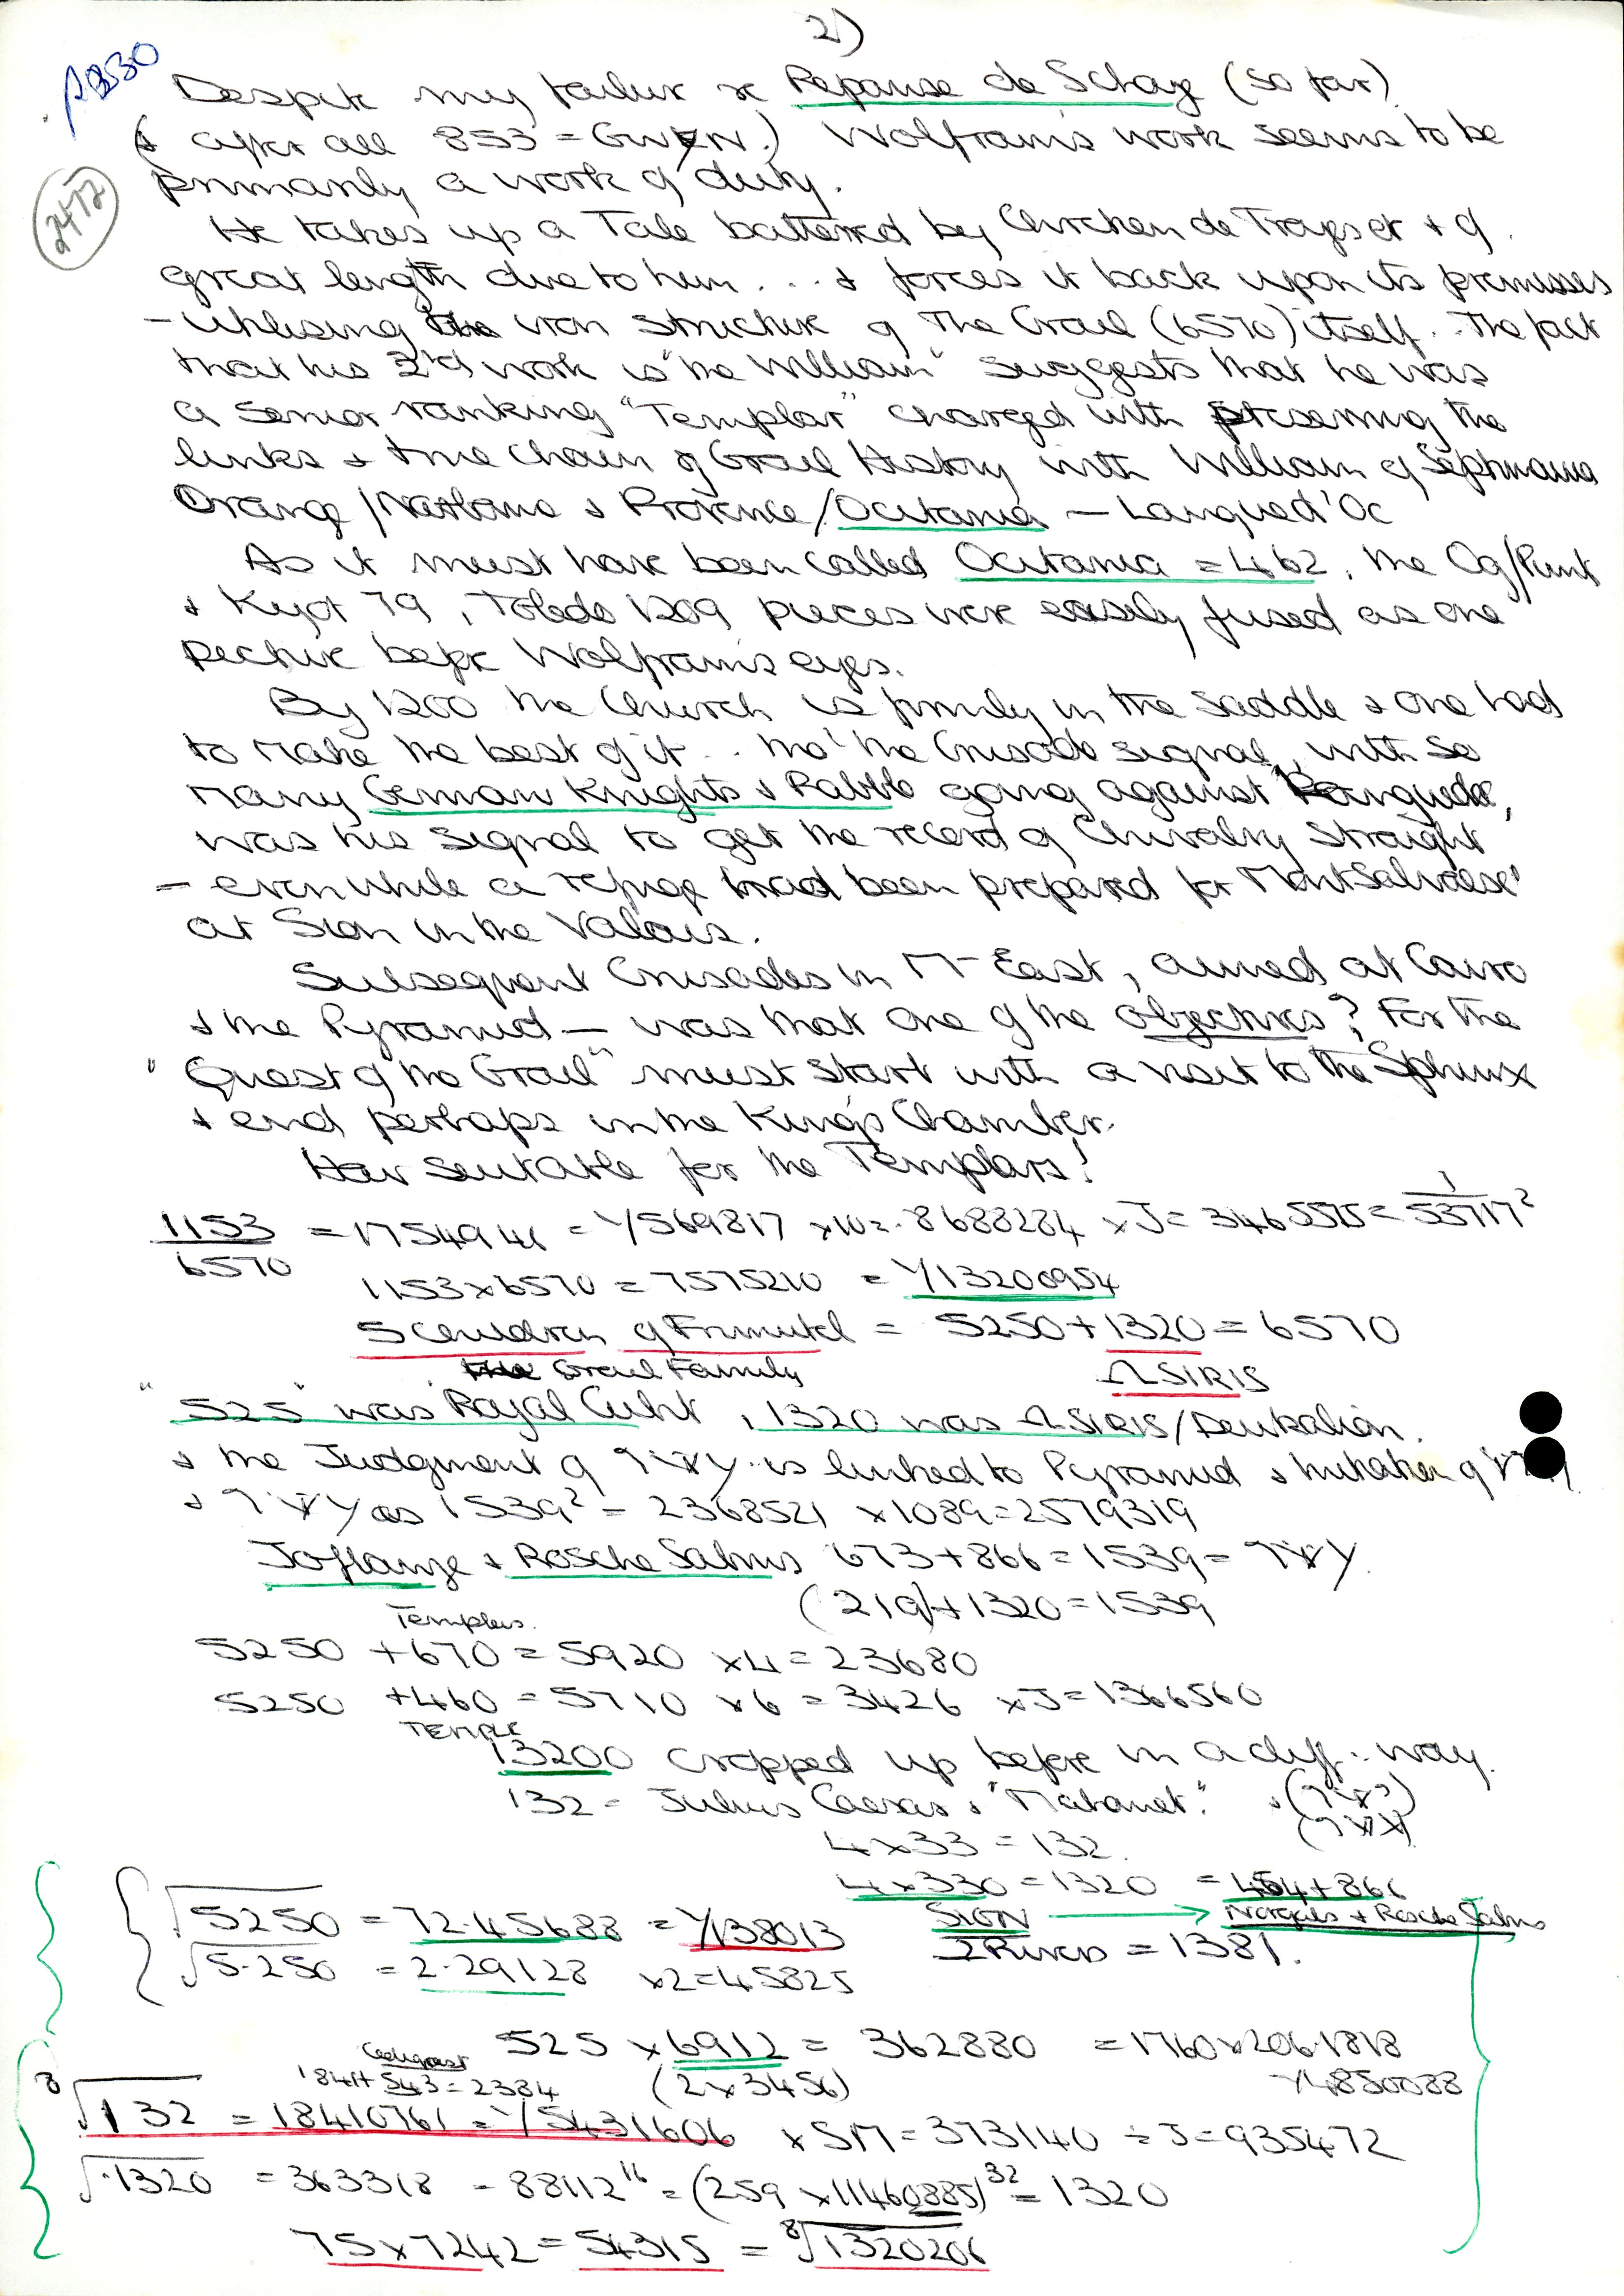 2)
Despite my failure re Repanse de Schoye (so far)
(& after all 853 = GWEN.) Wolfram's work seems to be
primarily a work of duty.
He takes up a Tale battered by Chrétien de Troyes &
great length due to him ... & forces it back upon its premisses
- utilising the iron structure of The Grail (6570) itself. The fact
that his 2nd work is "the William" suggests that he was
a senior ranking "Templar" charged with preserving the
links & true chain of Grail History with William of Septimania
Orange / Narbonne & Provence / Occitania — Langued'Oc
As it must have been called Occitania = 462, the Og/Punt
& Kyot 79, Toledo 1209 pieces were easily fused as one
picture before Wolfram's eyes.
By 1200 the Church is firmly in the saddle & one had
to make the best of it .. tho' the Crusade signal, with so
many German Knights & Rabble going against
was his signal to get the record of Chivalry straight
- even while a refuge had been prepared for "MontSalvaese"
at Sion in the Valais.
Subsequent Crusades in M-East, aimed at Cairo
& the Pyramid — was that one of the objectives? For the
"Quest of the Grail" must start with a visit to the Sphinx
& end perhaps in the King's Chamber.
How suitable for the Templars!
1153/6570 = 1754946 = 1/569817 x10= .8688284 x J= 3465575= 1/53717²
1153x6570 = 7575210 = 1/13200954
5 Children of Frimutel = 5250+1320 = 6570
Grail Family ΩSIRIS
"525" was "Royal Cubit, 1320 was ΩSIRIS/Deukalion.
& the Judgment of is linked to Pyramid &
& as 1539² = 2368521 x1089=2579319
Joflanze & Rosche Sabins 673+866=1539=
(219)+1320=1539
Templars.
5250 +670 = 5920 x4=23680
5250 +460 = 5710 x6 = 3426 xJ=1366560
TEMPLE
13200 cropped up before in a diff. way.
132 = Julius Caesar & "Natanet."
4x33 = 132.
4x330 = 1320 = 454+866
√5250 = 72.45688 = 1/138013 SION → Norgals & Rosche Sabins
√5.250 = 2.29128 x2=45825 2 Rivers = 1381.
525 x6912 = 362880 = 1760x206.1818
1841+543=2384 (2x3456) 1/4850088
⁸√132 = 18410761 = 1/5431606 x SM=373140 ÷ J=935472
√.1320 = 363318 = 88112¹⁶ = (259 x11460885)³² = 1320
75x7242 = 54315 = ⁸√1320206
2472